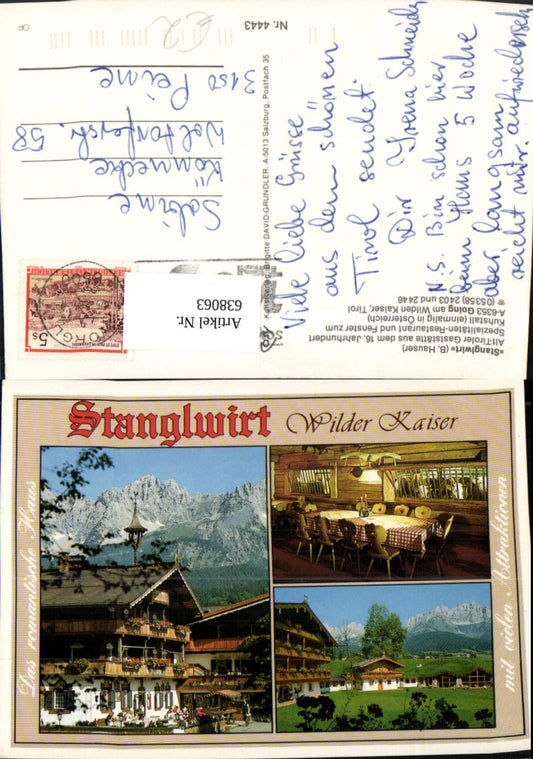 Viele liebe Grüsse
aus dem schönen
Tirol sendet
Dir Irena Schneider
N.S. Bin schon hier
beim Hans 5 Woche
aber langsam
reicht mir. aufwiedersehn
Sabine
Könnecke
Woltorferstr. 58
3150 Peine
Nr. 4443
8
Kunstverlag Brigitte DAVID-GRÜNDLER, A-5013 Salzburg, Postfach 35
»Stanglwirt« (B. Hauser)
Alt-Tiroler Gaststätte aus dem 16. Jahrhundert
Spezialitäten-Restaurant und Fenster zum
Kuhstall (einmalig in Österreich)
A-6353 Going am Wilden Kaiser, Tirol
(05358) 2403 und 2446
5s
Artikel Nr.
638063
Stanglwirt Wilder Kaiser
Das romantische Haus
mit vielen Attraktionen